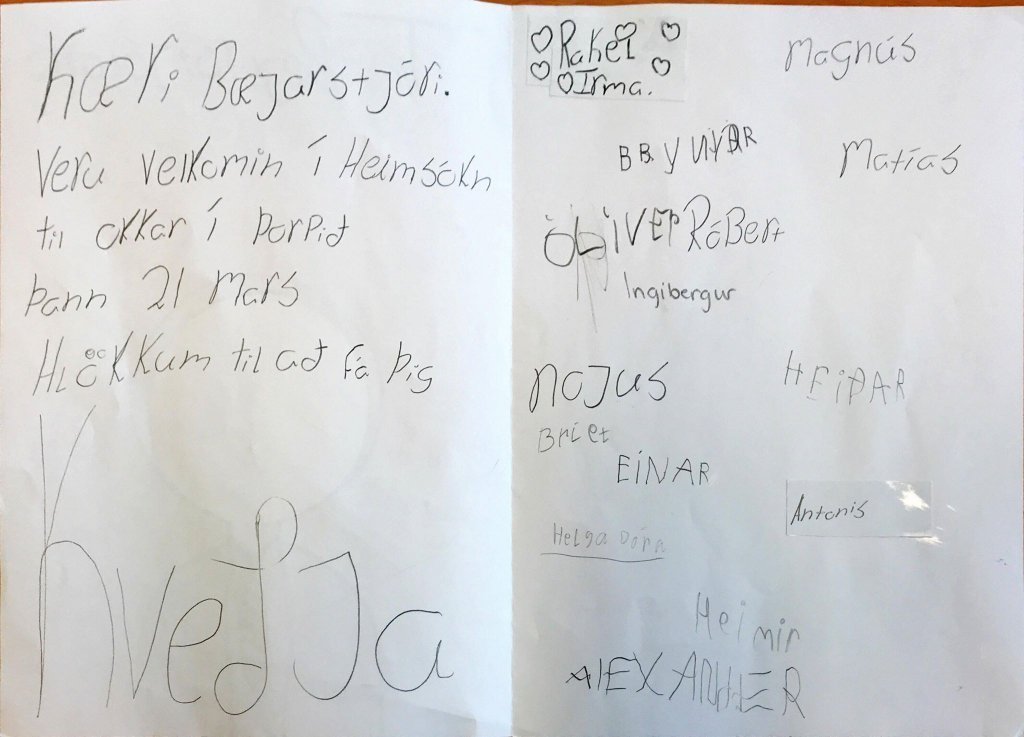 Kæri Bæjarstjóri.
Veru velkomin í Heimsókn
til okkar í Þorpið
Þann 21 Mars
HLÖKKum til að fá Þig
Kveðja
Rakel
Irma.
Magnús
Matías
ÓLIVER RÓBert
Ingibergur
NOJUS
HEIÐAR
Bríet
EINAR
Antonis
Helga Dóra
Heimir
ALEXANDER